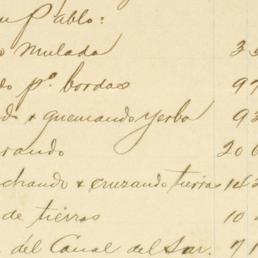 n Pablo:
o Mulada 35
do pa. bordas 97
do & quemando yerba 93
rando 200
chando & cruzando tierras 142
de tierras 10
del Canal del Sur. 71